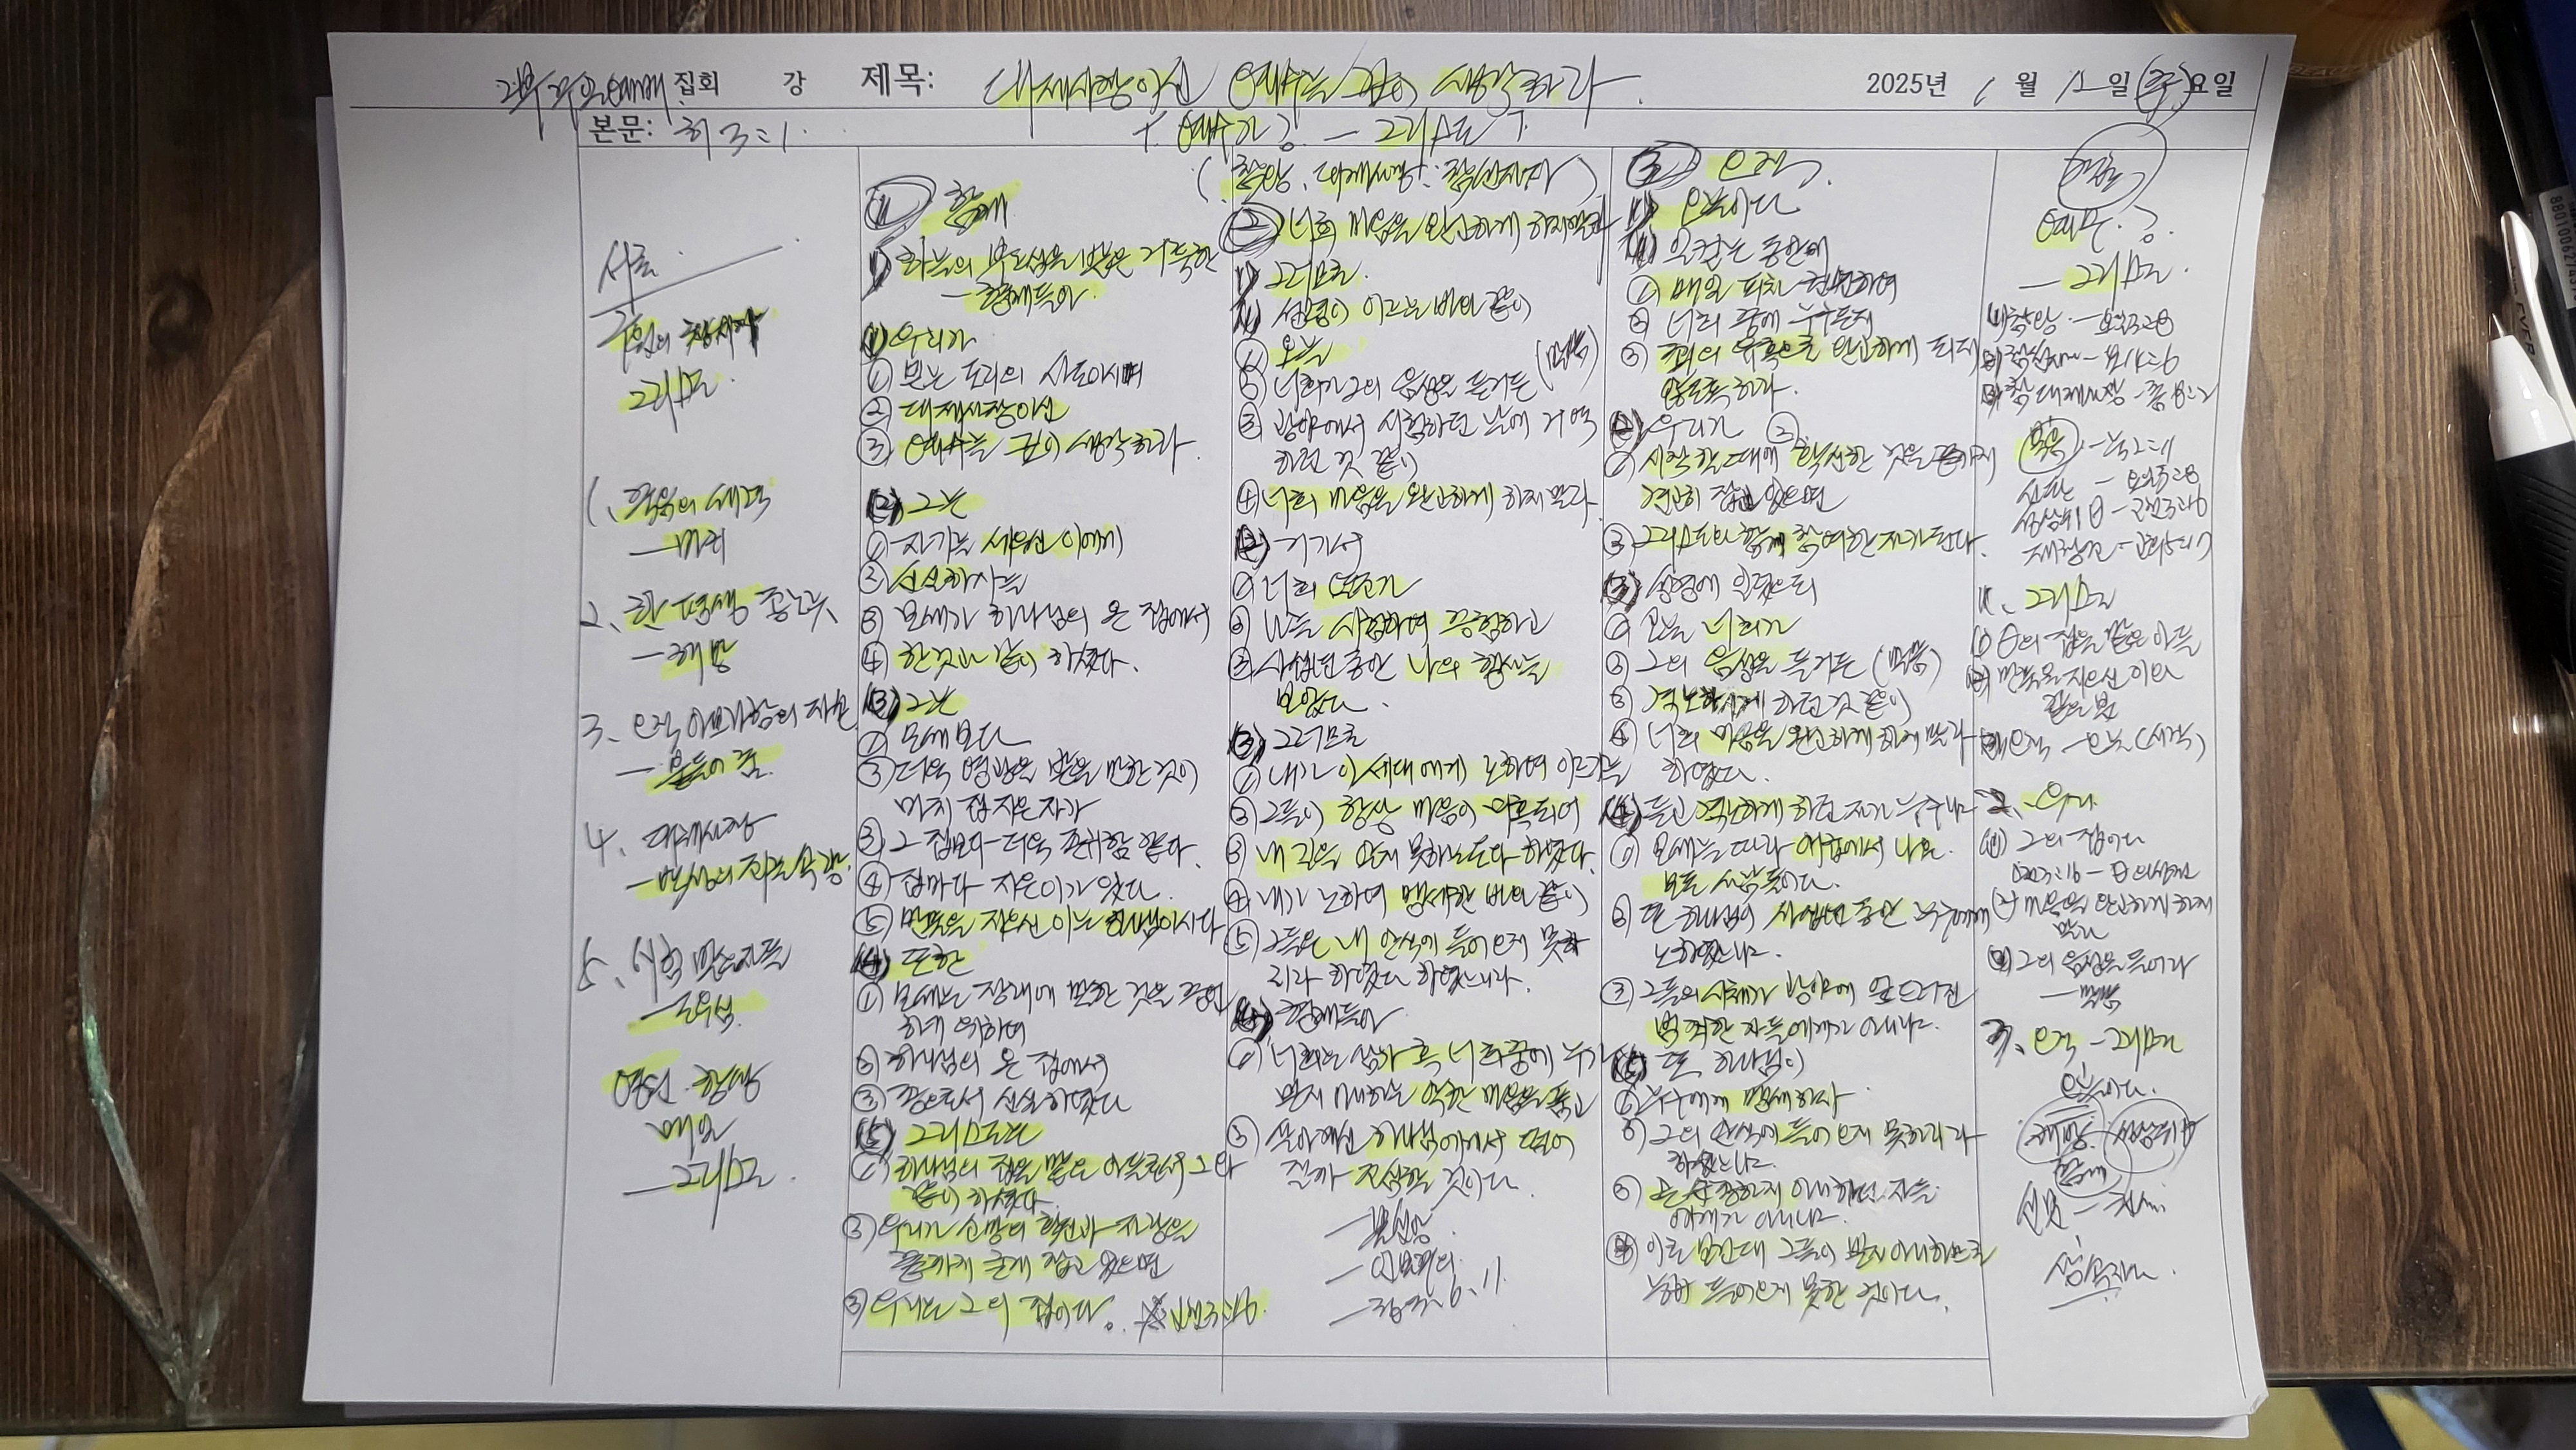 2부 주일예배 집회 강 제목: 대제사장이신 예수를 깊이 생각하라. 2025년 1월 12일(주)요일
본문: 히 3:1.
예수가 - 그리스도
(참왕, 대제사장, 참선지자)
서론.
구원의 창시자
그리스도.
1.
2. 한 평생 종노릇
- 해방
3. 오직 아브라함의 자손
- 붙들어 줌
4. 대제사장
- 백성의 죄를 속량
5. 시험 받는 자들
- 도우심
영원. 항상
매일
- 그리스도.
① 함께
1) 하늘의 부르심을 받은 거룩한
- 형제들아
(1) 우리가
① 믿는 도리의 사도이시며
② 대제사장이신
③ 예수를 깊이 생각하라.
(2) 그는
① 자기를 세우신 이에게
② 신실하시는
③ 모세가 하나님의 온 집에서
④ 한것과 같이 하셨다.
(3) 그는
① 모세보다
② 더욱 영광을 받을 만한 것이
마치 집 지은 자가
③ 그 집보다 더욱 존귀함 같다.
④ 집마다 지은이가 있다.
⑤ 만물을 지으신 이는 하나님이시다
(4) 또한
① 모세는 장래에 말할 것을 증언
하기 위하여
② 하나님의 온 집에서
③ 종으로서 신실하였다
(5) 그리스도는
① 하나님의 집을 맡은 아들로서 그와
같이 하셨다.
② 우리가 소망의 확신과 자랑을
끝까지 굳게 잡고 있으면
③ 우리는 그의 집이다. 고전3:16.
② 너희 마음을 완고하게 하지말라
1) 그러므로.
(1) 성령이 이르는 바와 같이
① 오늘
② 너희가 그의 음성을 듣거든
③ 광야에서 시험하던 날에 거역
하던 것 같이
④ 너희 마음을 완고하게 하지 말라.
(2) 거기서
① 너희 조상가
② 나를 시험하여 증험하고
③ 사십년 동안 나의 행사를
보았다.
(3) 그러므로
① 내가 이 세대에게 노하여 이르기를
② 그들이 항상 마음이 미혹되어
③ 내 길을 알지 못하는도다 하였다.
④ 내가 노하여 맹세한 바와 같이
⑤ 그들은 내 안식에 들어오지 못하
리라 하였다 하였느니라.
(4) 형제들아
① 너희는 삼가 혹 너희중에 누가
믿지 아니하는 악한 마음을 품고
② 살아계신 하나님에게서 떨어
질까 조심할 것이다.
- 불신앙
- 창3, 6, 11
③ 오직.
1) 오늘이다.
(1) 일컫는 동안에
① 매일 피차 권면하여
② 너희 중에 누구든지
③ 죄의 유혹으로 완고하게 되지
않도록 하라.
(2) 우리가
① 시작할 때에 확신한 것을 끝까지
견고히 잡고 있으면
② 그리스도와 함께 참여한 자가 된다.
(3) 성경에 일렀으되
① 오늘 너희가
② 그의 음성을 듣거든
③ 격노하시게 하던 것 같이
④ 너희 마음을 완고하게 하지 말라
하였다.
(4) 듣고 격노하게 하던 자가 누구냐
① 모세를 따라 애굽에서 나온
모든 사람들이다.
② 또 하나님이 사십년 동안 누구에게
노하셨느냐.
③ 그들의 시체가 광야에 엎드러진
범죄한 자들에게가 아니냐.
(5) 또 하나님이
① 누구에게 맹세하사
② 그의 안식에 들어오지 못하리라
하셨느냐.
③ 곧 순종하지 아니하던 자들
에게가 아니냐.
④ 이로 보건대 그들이 믿지 아니하므로
능히 들어오지 못한 것이다.
결론
예수.
- 그리스도.
1. 그리스도
만물을 지으신 이와
오직 - 오늘
2. 우리
(1) 그의 집이다
마음을 완고하게 하지
말라
그의 음성을 들어라
3. 오직 - 그리스도
오늘이다.